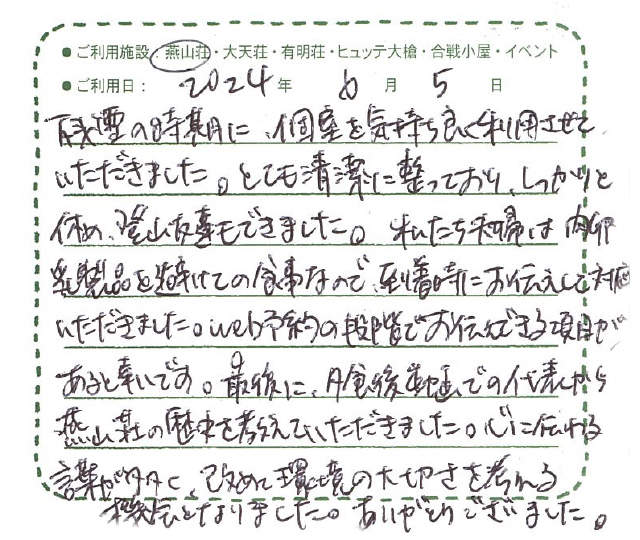 ●ご利用施設：燕山荘・大天荘・有明荘・ヒュッテ大槍・合戦小屋・イベント
●ご利用日： 2024 年 6 月 5 日
残雪の時期に、個室を気持ち良く利用させて
いただきました。とても清潔に整っており、しっかりと
休め、登山友事もできました。私たち夫婦は肉卵
乳製品を避けての食事なので、到着時にお伝えして対応
いただきました。web予約の段階でお伝えできる項目が
あると幸いです。最後に、夕食後での代表から
燕山荘の歴史を教えていただきました。心に伝わる
言葉が多く、改めて環境の大切さを考える
機会となりました。ありがとうございました。